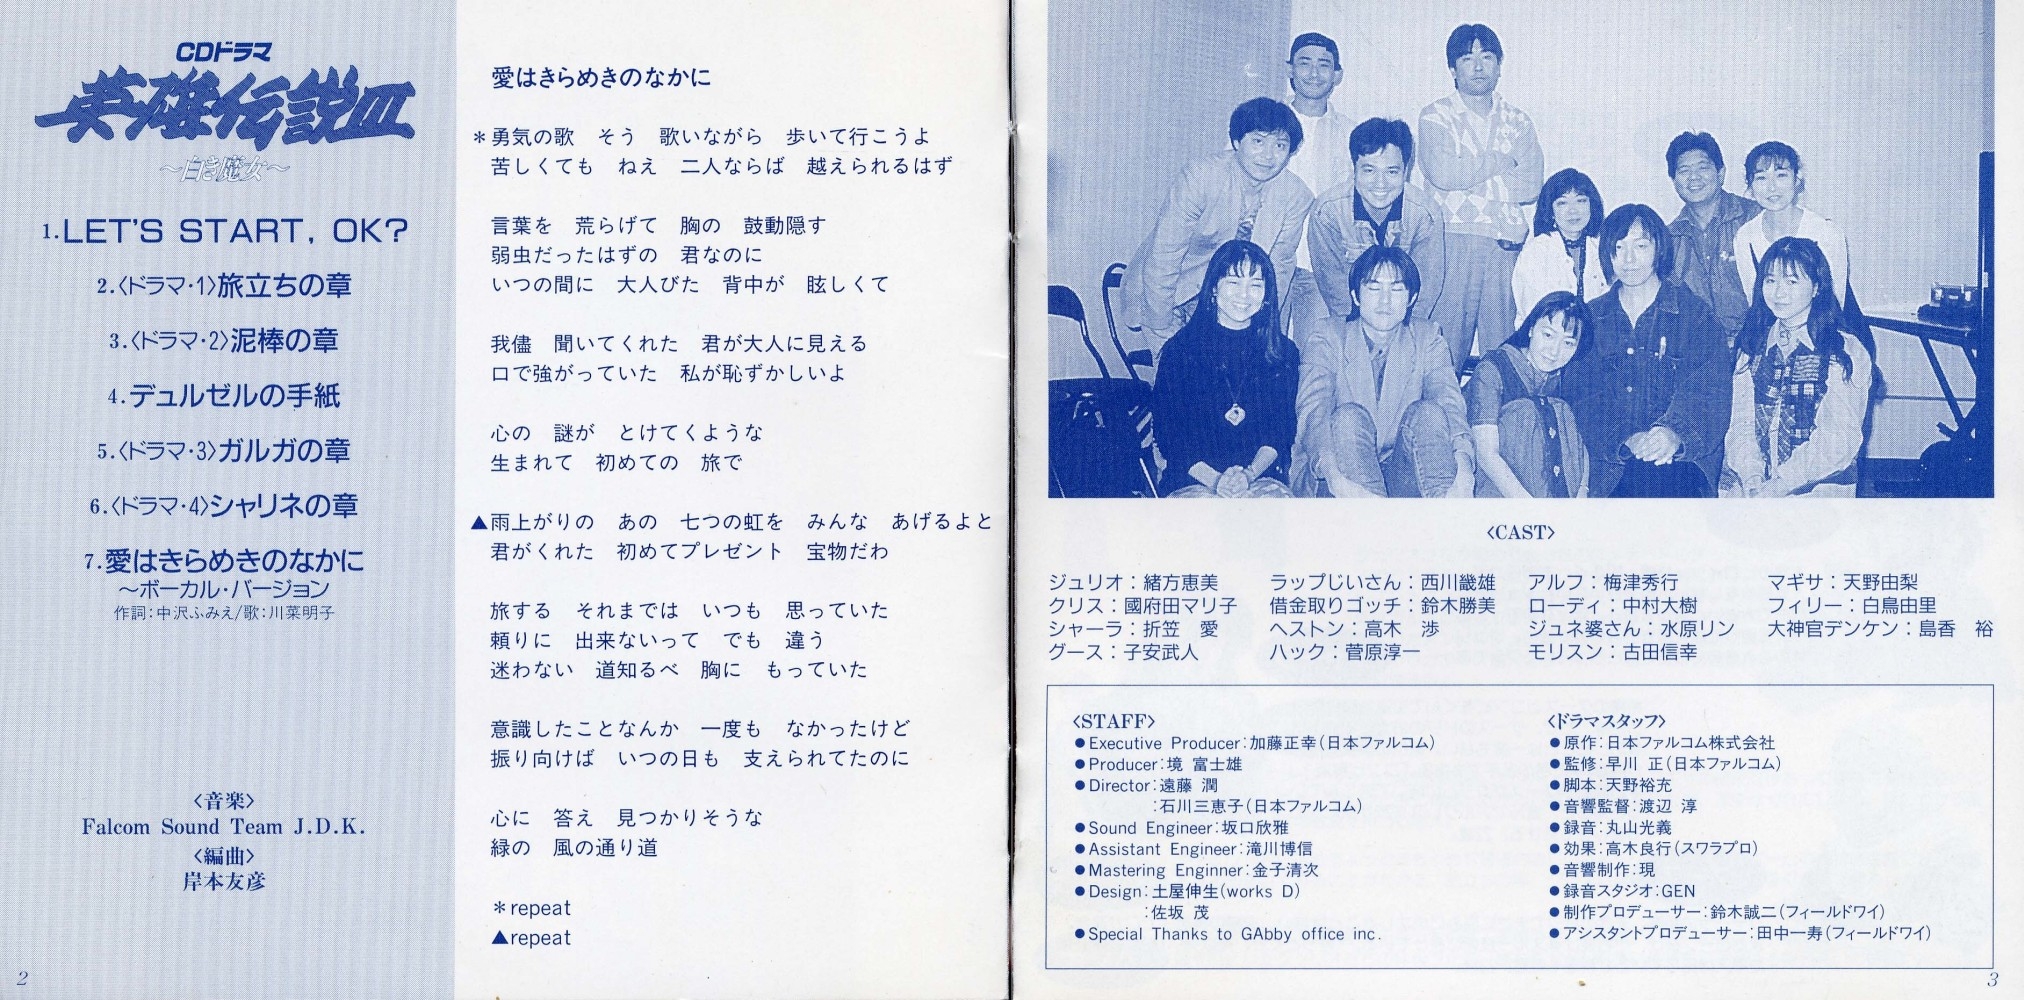 CDドラマ
英雄伝説III
～白き魔女～
1.LET'S START, OK?
2.〈ドラマ・1〉旅立ちの章
3.〈ドラマ・2〉泥棒の章
4.デュルゼルの手紙
5.〈ドラマ・3〉ガルガの章
6.〈ドラマ・4〉シャリネの章
7.愛はきらめきのなかに
～ボーカル・バージョン
作詞：中沢ふみえ/歌：川菜明子
〈音楽〉
Falcom Sound Team J.D.K.
〈編曲〉
岸本友彦
2
愛はきらめきのなかに
＊勇気の歌　そう　歌いながら　歩いて行こうよ
苦しくても　ねえ　二人ならば　越えられるはず
言葉を　荒らげて　胸の　鼓動隠す
弱虫だったはずの　君なのに
いつの間に　大人びた　背中が　眩しくて
我儘　聞いてくれた　君が大人に見える
口で強がっていた　私が恥ずかしいよ
心の　謎が　とけてくような
生まれて　初めての　旅で
▲雨上がりの　あの　七つの虹を　みんな　あげるよと
君がくれた　初めてプレゼント　宝物だわ
旅する　それまでは　いつも　思っていた
頼りに　出来ないって　でも　違う
迷わない　道知るべ　胸に　もっていた
意識したことなんか　一度も　なかったけど
振り向けば　いつの日も　支えられてたのに
心に　答え　見つかりそうな
緑の　風の通り道
＊repeat
▲repeat
〈CAST〉
ジュリオ：緒方恵美　ラップじいさん：西川畿雄　アルフ：梅津秀行　マギサ：天野由梨
クリス：國府田マリ子　借金取りゴッチ：鈴木勝美　ローディ：中村大樹　フィリー：白鳥由里
シャーラ：折笠　愛　ヘストン：高木　渉　ジュネ婆さん：水原リン　大神官デンケン：島香　裕
グース：子安武人　ハック：菅原淳一　モリスン：古田信幸
〈STAFF〉
●Executive Producer：加藤正幸（日本ファルコム）
●Producer：境 富士雄
●Director：遠藤 潤
：石川三恵子（日本ファルコム）
●Sound Engineer：坂口欣雅
●Assistant Engineer：滝川博信
●Mastering Enginner：金子清次
●Design：土屋伸生（works D）
：佐坂 茂
●Special Thanks to GAbby office inc.
〈ドラマスタッフ〉
●原作：日本ファルコム株式会社
●監修：早川 正（日本ファルコム）
●脚本：天野裕充
●音響監督：渡辺 淳
●録音：丸山光義
●効果：高木良行（スワラプロ）
●音響制作：現
●録音スタジオ：GEN
●制作プロデューサー：鈴木誠二（フィールドワイ）
●アシスタントプロデューサー：田中一寿（フィールドワイ）
3